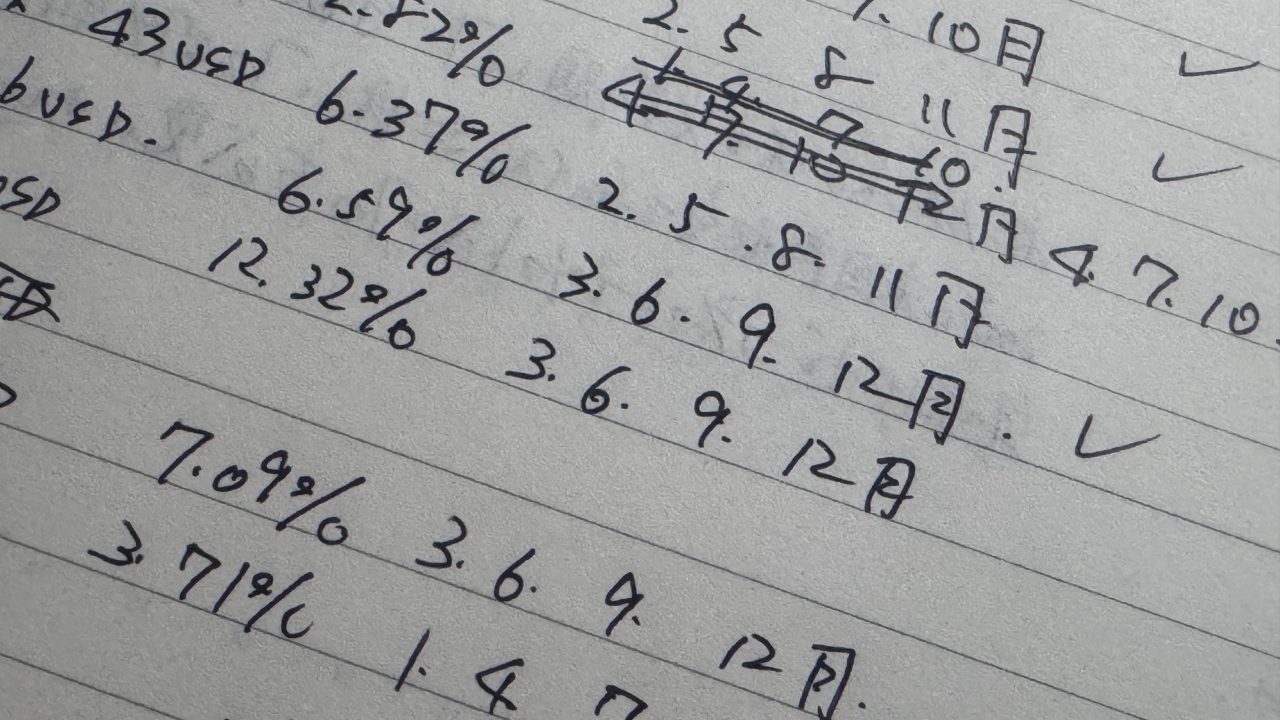 7. 10月 ✓
2.82% 2. 5 8 11月 ✓
43USD 6.37% 4. 7. 10.
6USD. 6.59% 2. 5. 8. 11月
USD 12.32% 3. 6. 9. 12月. ✓
3. 6. 9. 12月
7.09% 3. 6. 9. 12月.
3.71% 1. 4 7